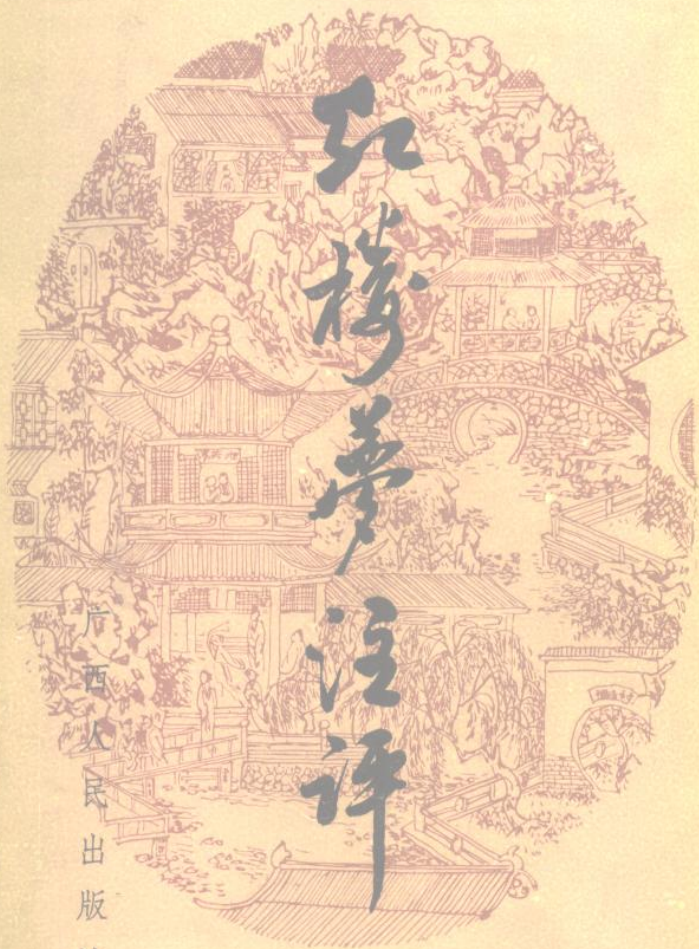 红楼梦注评
广西人民出版